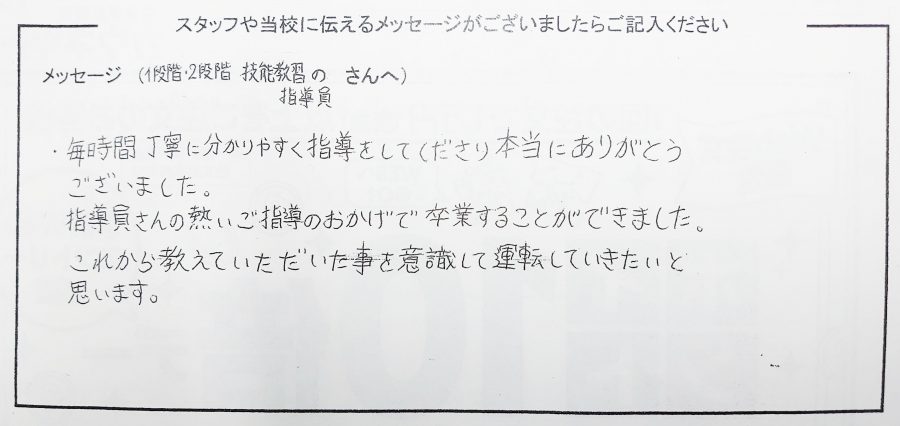 スタッフや当校に伝えるメッセージがございましたらご記入ください
メッセージ (1段階・2段階 技能教習の さんへ)
指導員
・毎時間丁寧に分かりやすく指導をしてくださり本当にありがとう
ございました。
指導員さんの熱いご指導のおかげで卒業することができました。
これから教えていただいた事を意識して運転していきたいと
思います。